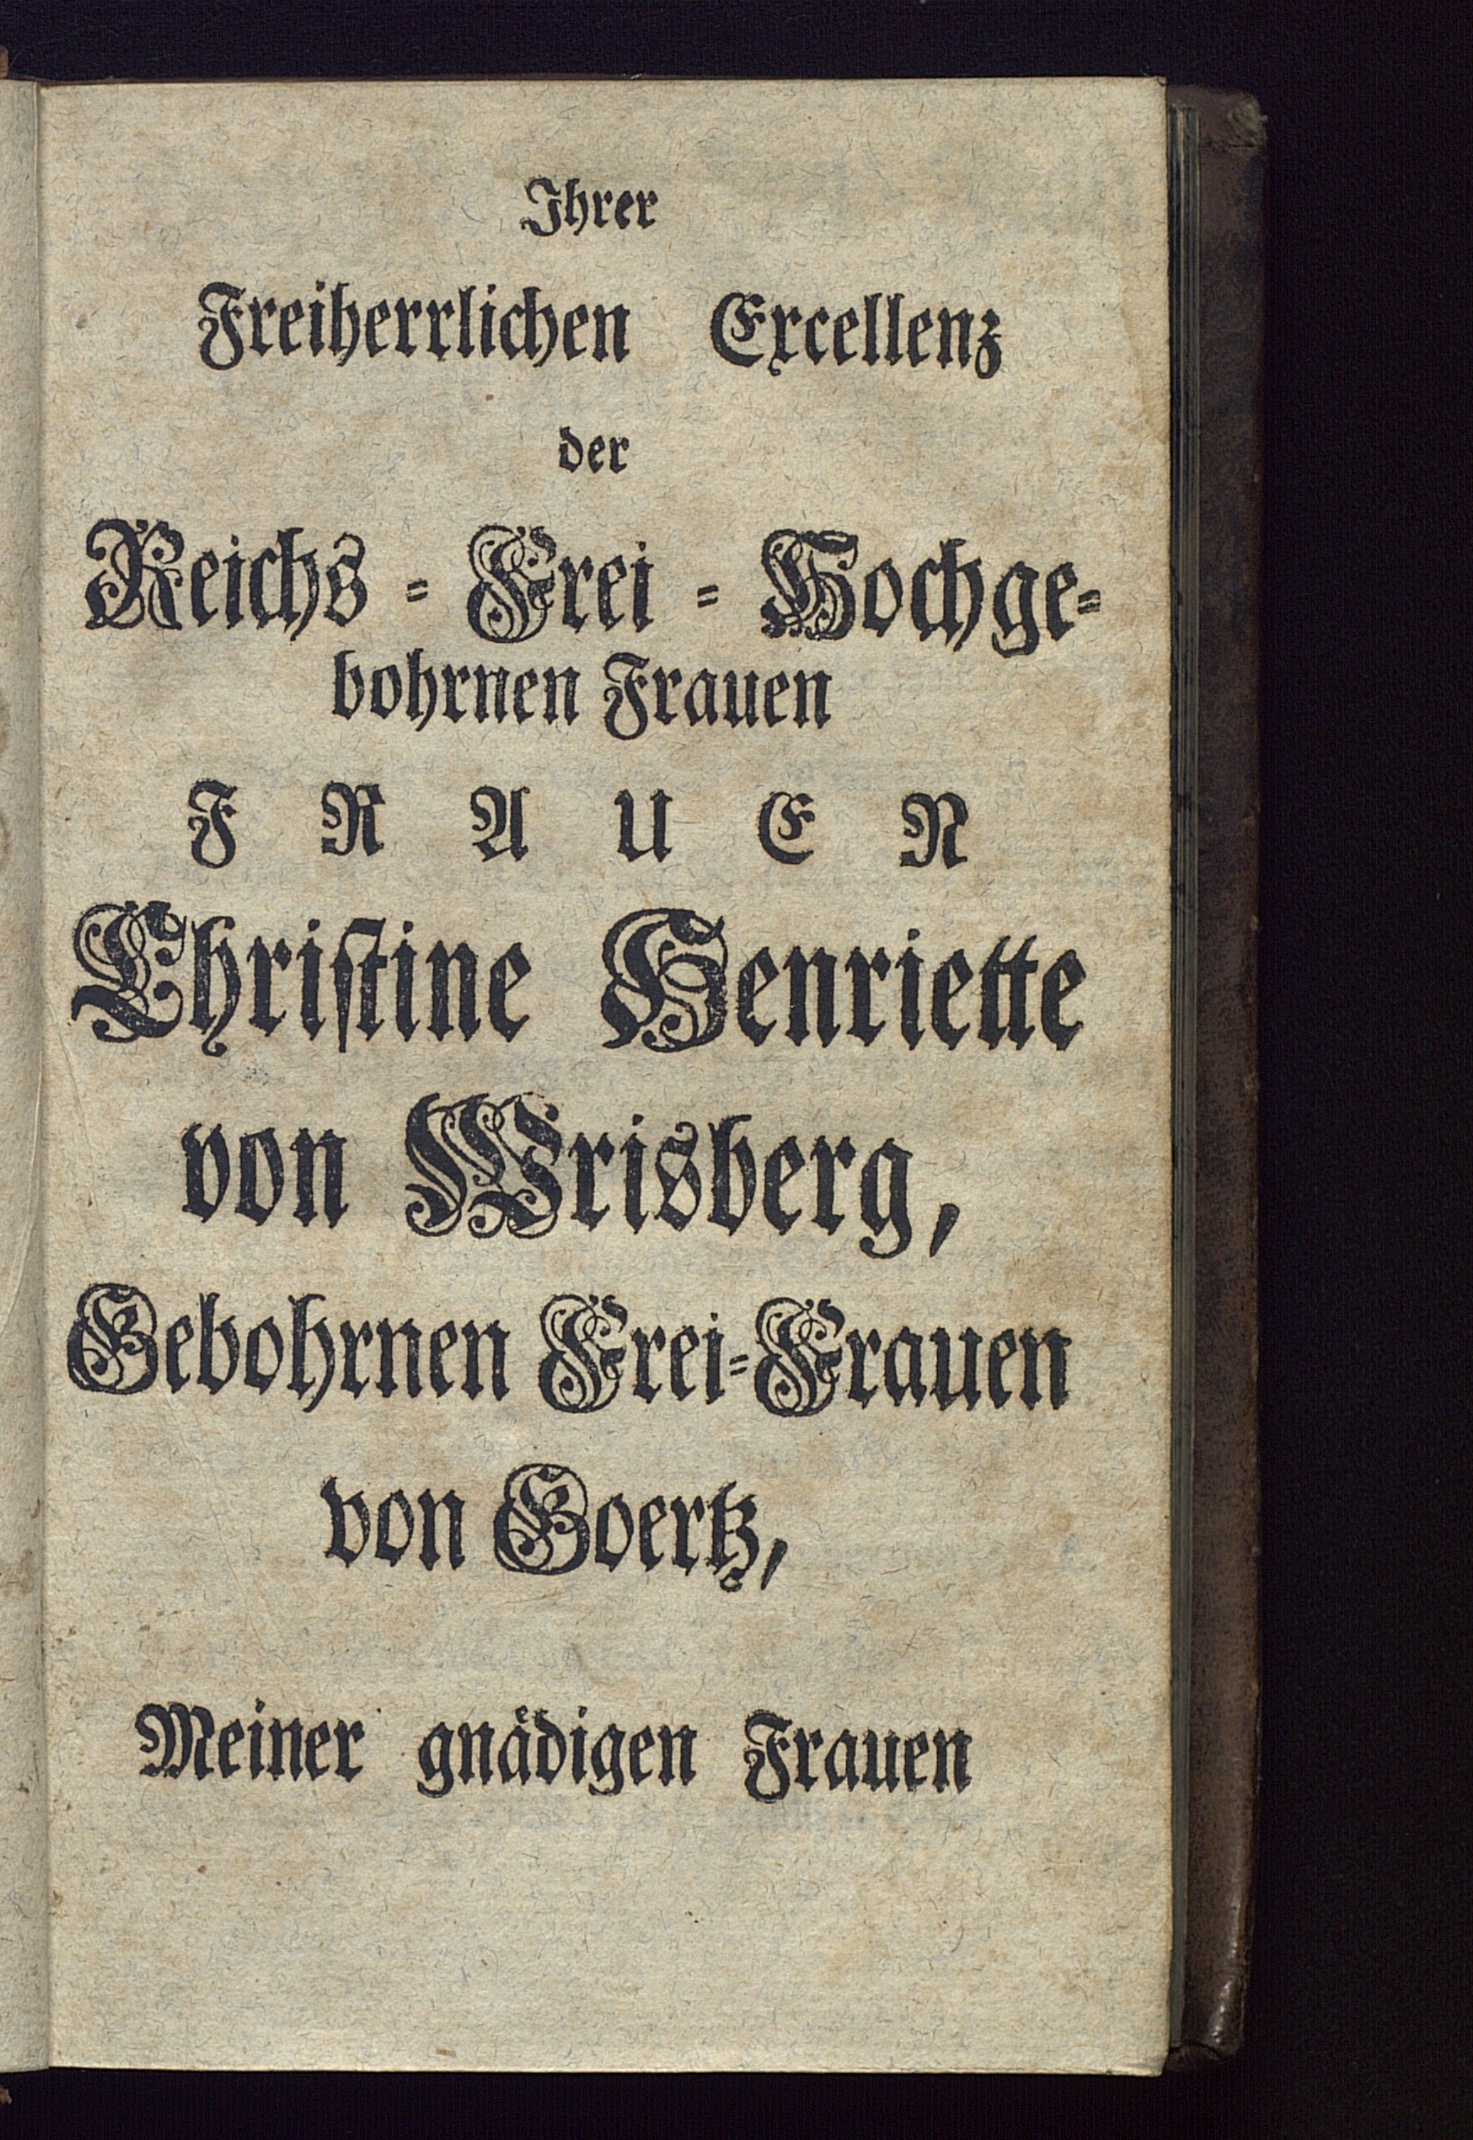 Ihrer
Freiherrlichen Excellenz
der
Reichs = Frei = Hochge=
bohrnen Frauen
F R A U E N
Chriſtine Henriette
von Wrisberg,
Gebohrnen Frei=Frauen
von Goertz,
Meiner gnädigen Frauen